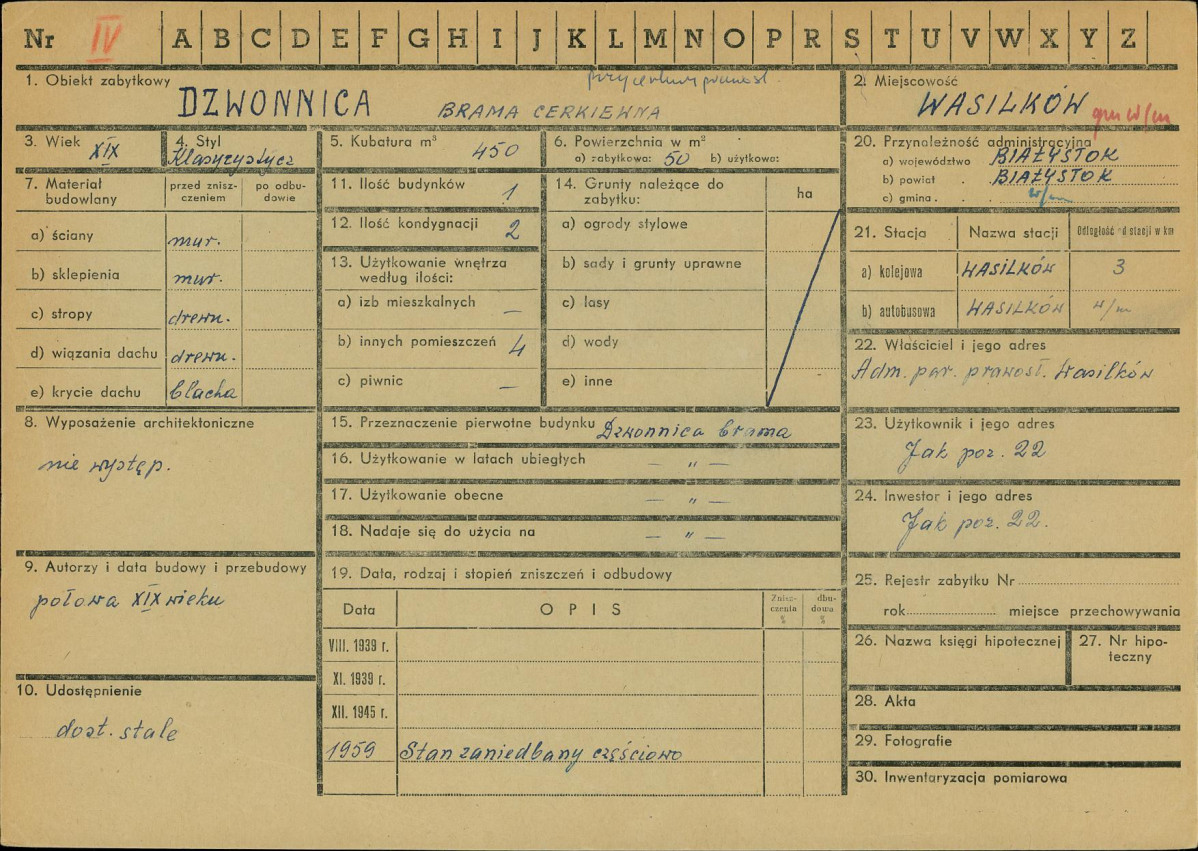 Nr IV A B C D E F G H I J K L M N O P R S T U V W X Y Z
1. Obiekt zabytkowy
DZWONNICA BRAMA CERKIEWNA
2. Miejscowość
WASILKÓW
gm w/m
3. Wiek XIX
4. Styl
Klasycystycz
5. Kubatura m³ 450
6. Powierzchnia w m²
a) zabytkowa: 50 b) użytkowa:
20. Przynależność administracyjna
a) województwo BIAŁYSTOK
b) powiat . BIAŁYSTOK
c) gmina . . . w/m
7. Materiał budowlany
przed znisz-
czeniem
po odbu-
dowie
a) ściany mur.
b) sklepienia mur.
c) stropy drewn.
d) wiązania dachu drewn.
e) krycie dachu blacha
11. Ilość budynków 1
12. Ilość kondygnacji 2
13. Użytkowanie wnętrza
według ilości:
a) izb mieszkalnych —
b) innych pomieszczeń 4
c) piwnic —
14. Grunty należące do
zabytku:
ha
a) ogrody stylowe
b) sady i grunty uprawne
c) lasy
d) wody
e) inne
21. Stacja Nazwa stacji Odległość od stacji w km
a) kolejowa WASILKÓW 3
b) autobusowa WASILKÓW w/m
22. Właściciel i jego adres
Adm. par. prawosł. Wasilków
8. Wyposażenie architektoniczne
nie występ.
15. Przeznaczenie pierwotne budynku Dzwonnica brama
16. Użytkowanie w latach ubiegłych — " —
17. Użytkowanie obecne — " —
18. Nadaje się do użycia na — " —
23. Użytkownik i jego adres
Jak poz. 22
24. Inwestor i jego adres
Jak poz. 22.
9. Autorzy i data budowy i przebudowy
połowa XIX wieku
10. Udostępnienie
dost. stale
19. Data, rodzaj i stopień zniszczeń i odbudowy
Data OPIS
Znisz-
czenia
%
dbu-
dowa
%
VIII. 1939 r.
XI. 1939 r.
XII. 1945 r.
1959 Stan zaniedbany częściowo
25. Rejestr zabytku Nr
rok miejsce przechowywania
26. Nazwa księgi hipotecznej
27. Nr hipo-
teczny
28. Akta
29. Fotografie
30. Inwentaryzacja pomiarowa